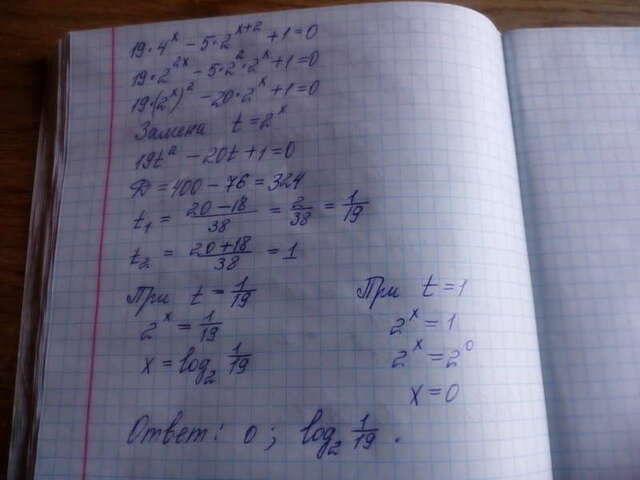 19·4^x − 5·2^(x+2) + 1 = 0
19·2^(2x) − 5·2^2·2^x + 1 = 0
19·(2^x)^2 − 20·2^x + 1 = 0
Замена t = 2^x
19t^2 − 20t + 1 = 0
D = 400 − 76 = 324
t₁ = (20−18)/38 = 2/38 = 1/19
t₂ = (20+18)/38 = 1
При t = 1/19
2^x = 1/19
x = log₂ 1/19
При t = 1
2^x = 1
2^x = 2^0
x = 0
Ответ: 0; log₂ 1/19.